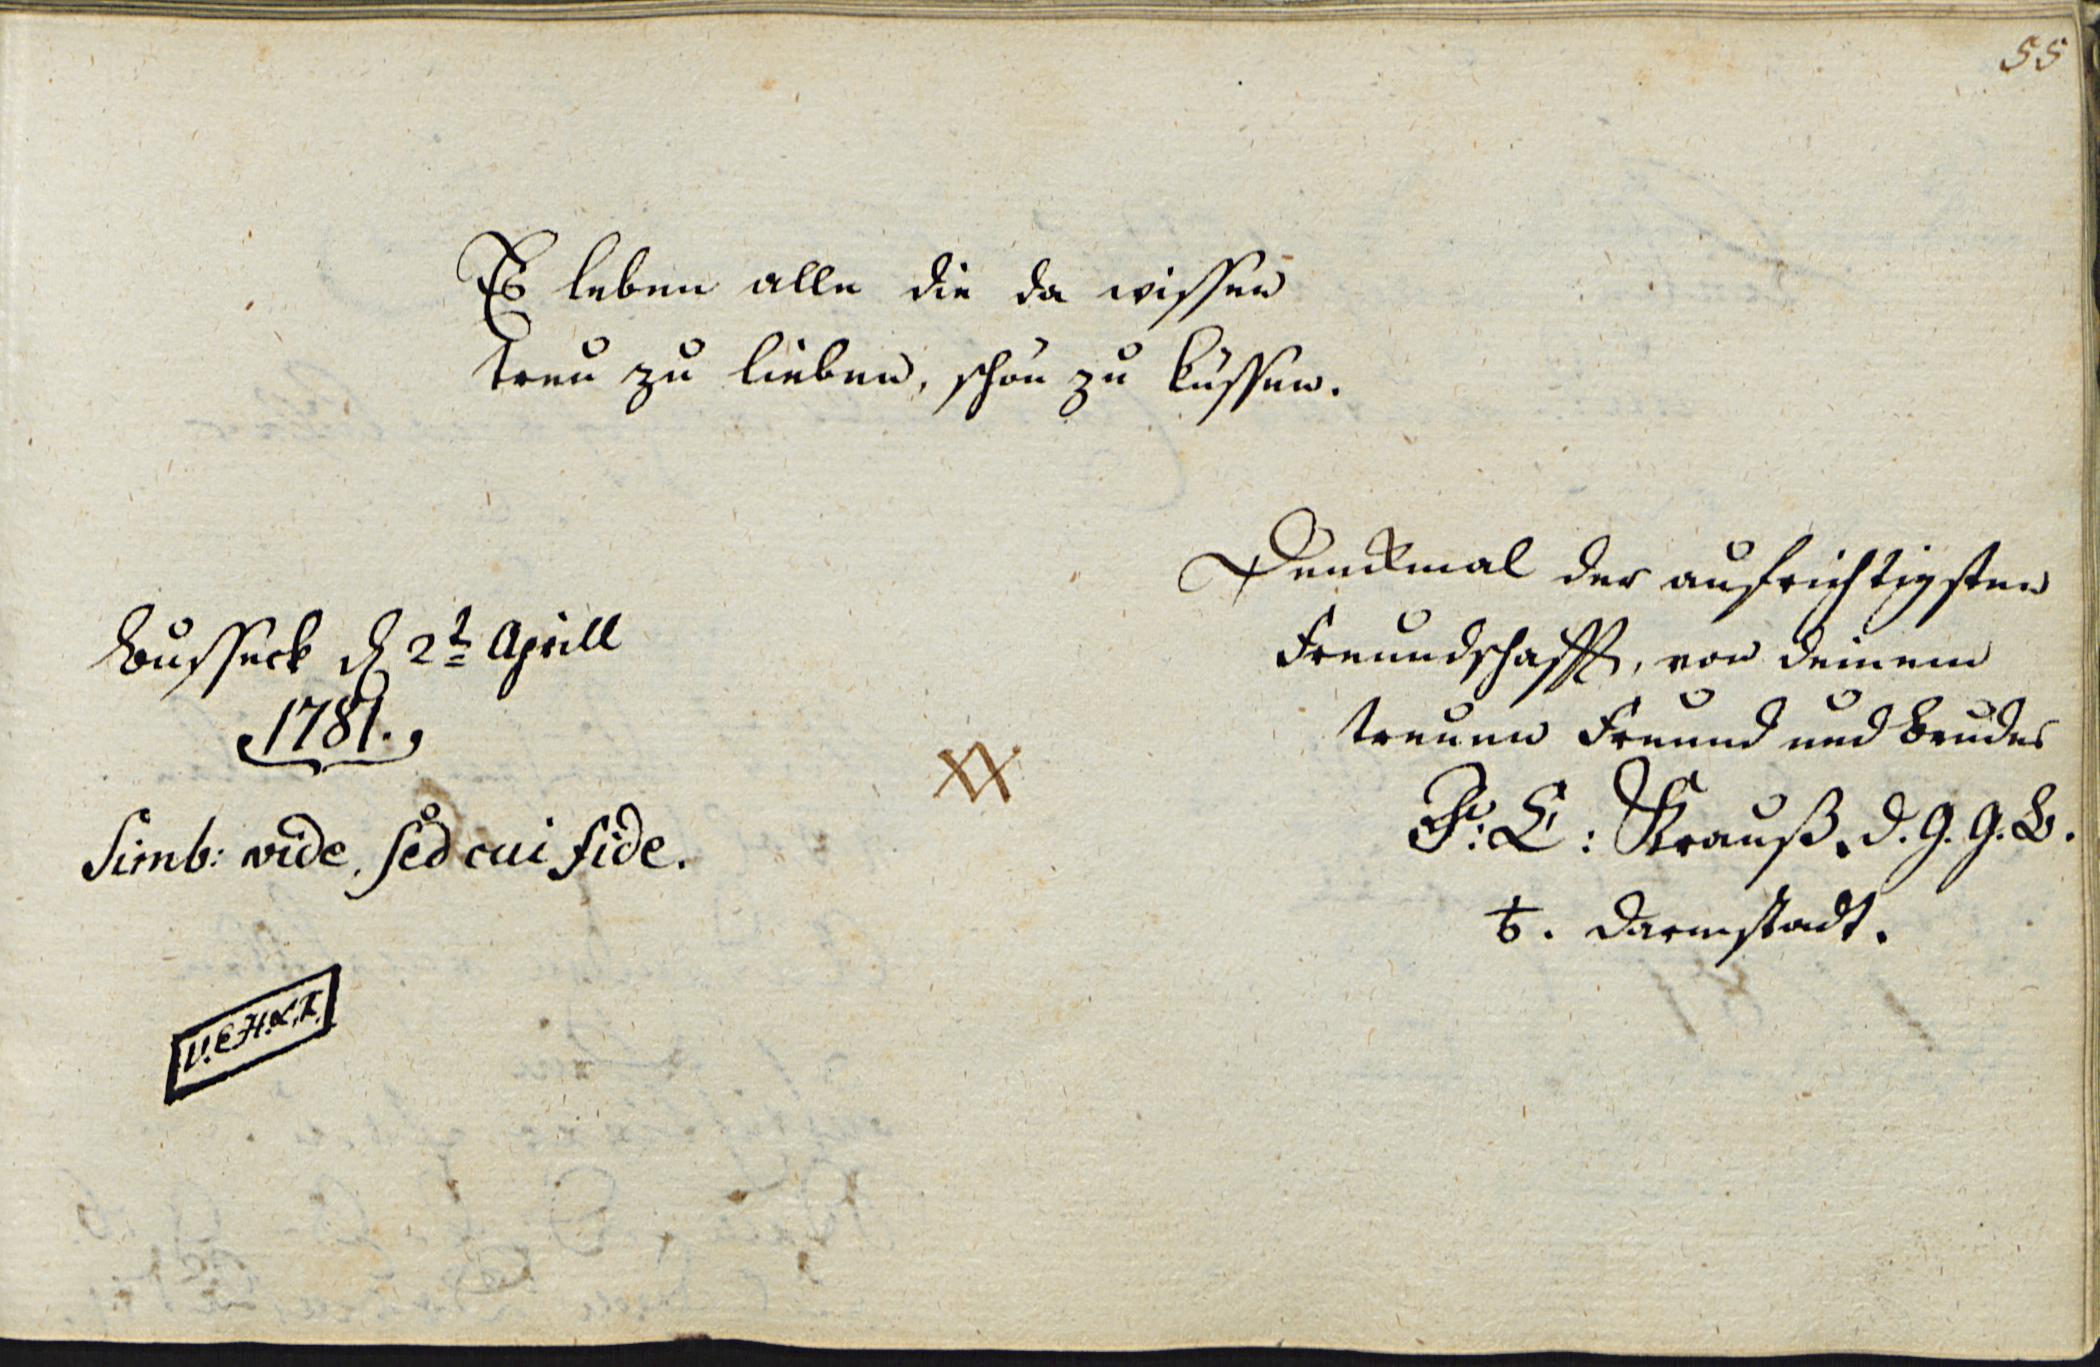 55
Es leben alle die da wissen
treu zu lieben, schön zu küssen.
Busseck d 2t Aprill
1781.
Simb: vide, sed cui fide.
V.E.H.X.T.
XX
Denckmal der aufrichtigsten
Freundschafft, von deinem
treuen Freund und Bruder
F: L: Krauß. d. G. G. B.
t. Darmstadt.